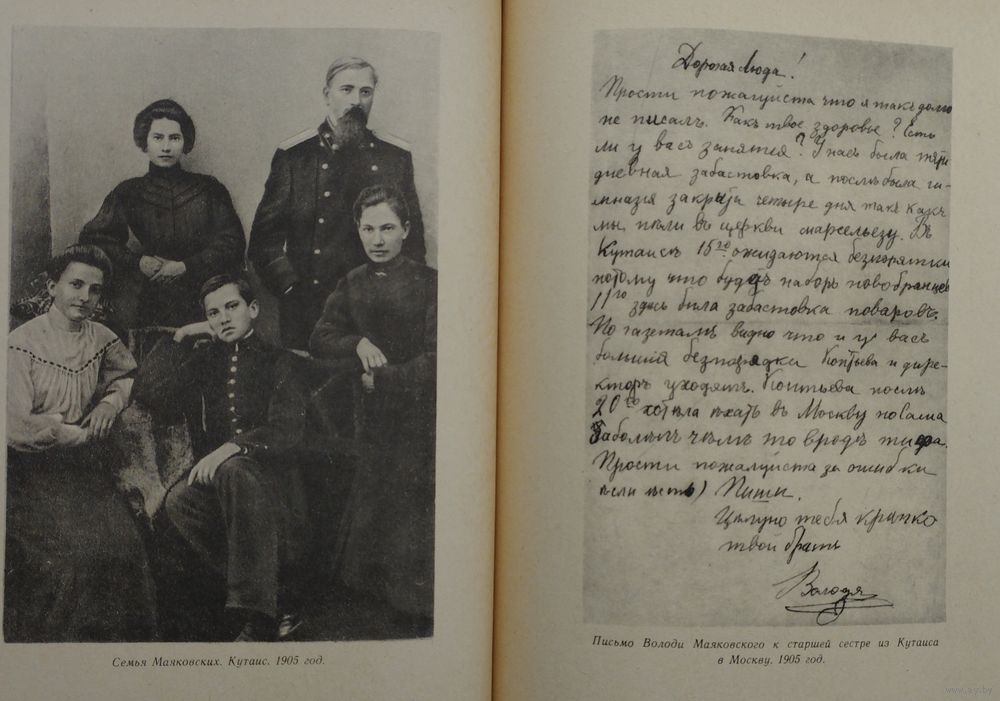 Семья Маяковских. Кутаис. 1905 год.
Дорогая Люда!
Прости пожалуйста что я такъ долго
не писалъ. Какъ твое здоровье? Есть
ли у васъ занятія? У насъ была
дневная забастовка, а послѣ была ги-
мназія закрыта четыре дня такъ какъ
мы пѣли въ церкви марсельезу. Въ
Кутаисѣ 15го ожидаются безпорядки
потому что будетъ наборъ новобранцевъ
11го здѣсь была забастовка поваровъ.
По газетамъ видно что и у васъ
большія безпорядки и дире-
кторъ уходятъ. послѣ
20го хотѣла ѣхать въ Москву но сама
заболѣла чѣмъ то вродѣ тифа.
Прости пожалуйста за ошибки
если есть) Пиши.
Цѣлую тебя крѣпко
твой братъ
Володя
Письмо Володи Маяковского к старшей сестре из Кутаиса
в Москву. 1905 год.
www.ay.by